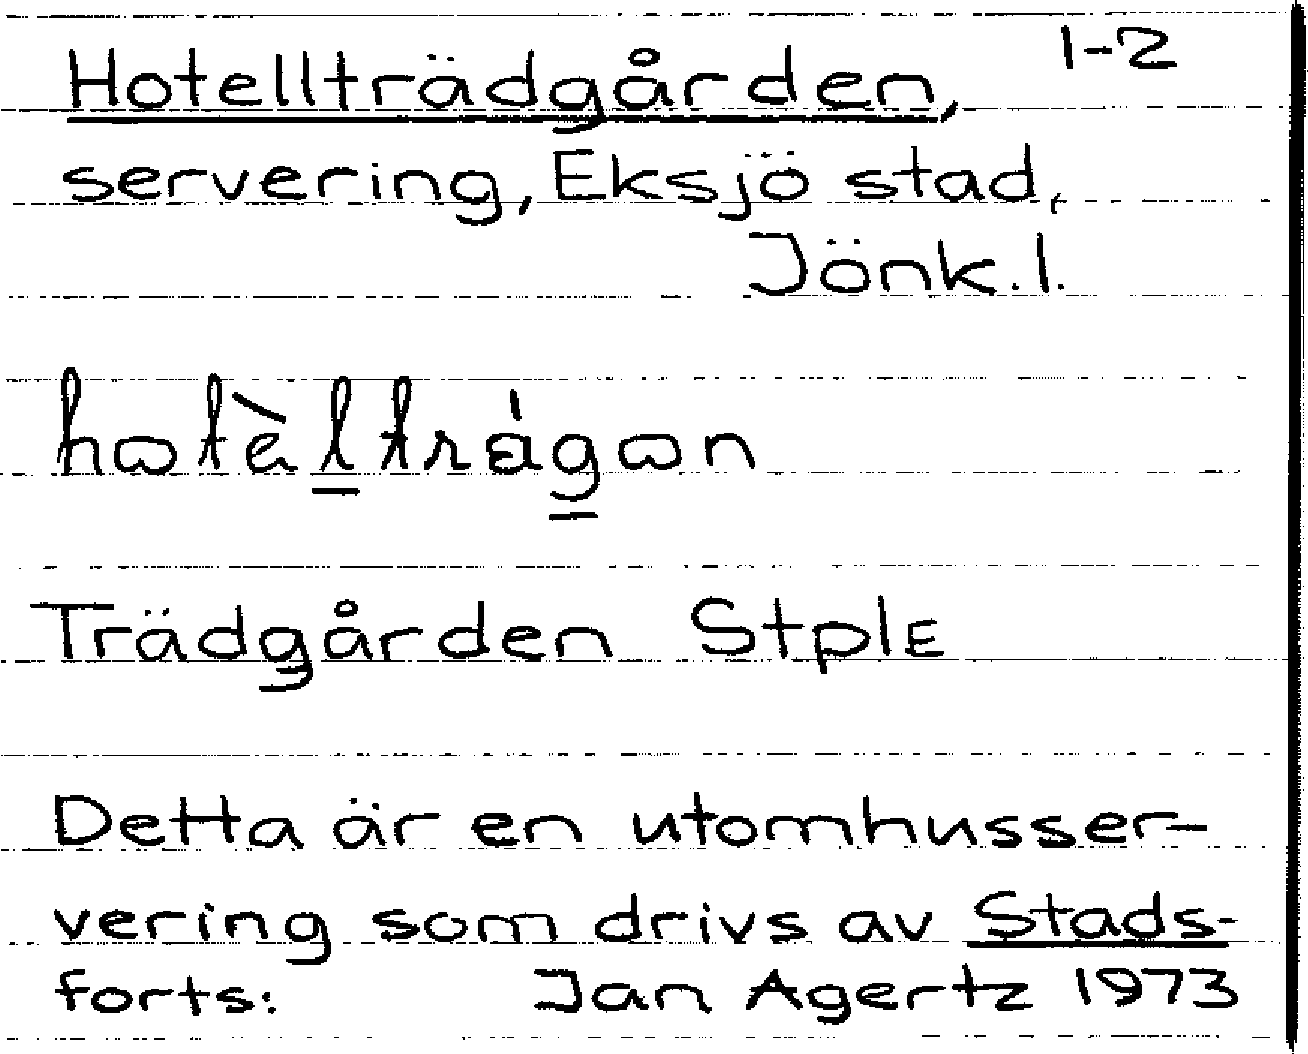 Hotellträdgården, 1-2
servering, Eksjö stad,
Jönk.l.
hotèltrágon
Trädgården StplE
Detta är en utomhusser-
vering som drivs av Stads-
forts: Jan Agertz 1973